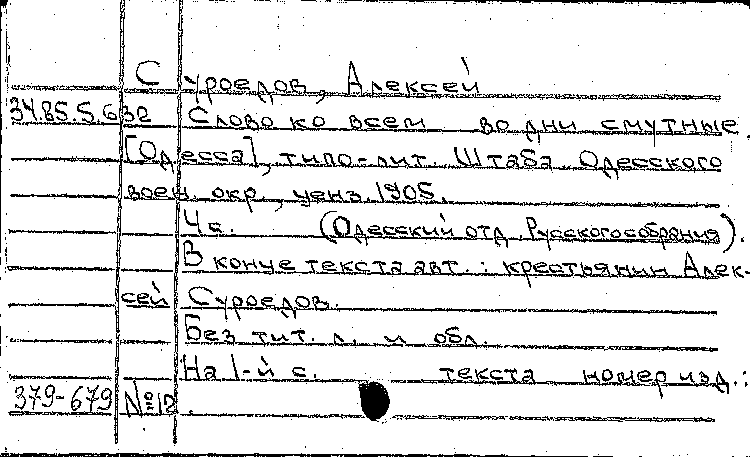 Суроедов, Алексей
34.85.5.632 Слово ко всем во дни смутные.
[Одесса], типо-лит. Штаба Одесского
воен. окр., ценз. 1905.
4 с. (Одесский отд. Русского собрания).
В конце текста авт.: крестьянин Алек-
сей Суроедов.
Без тит. л. и обл.
На 1-й с. текста номер изд.:
379-679 №12.